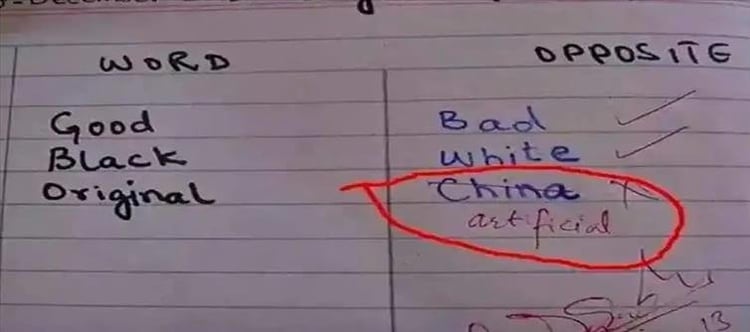 WORD OPPOSITE
Good Bad
Black White
Original China
artificial
13